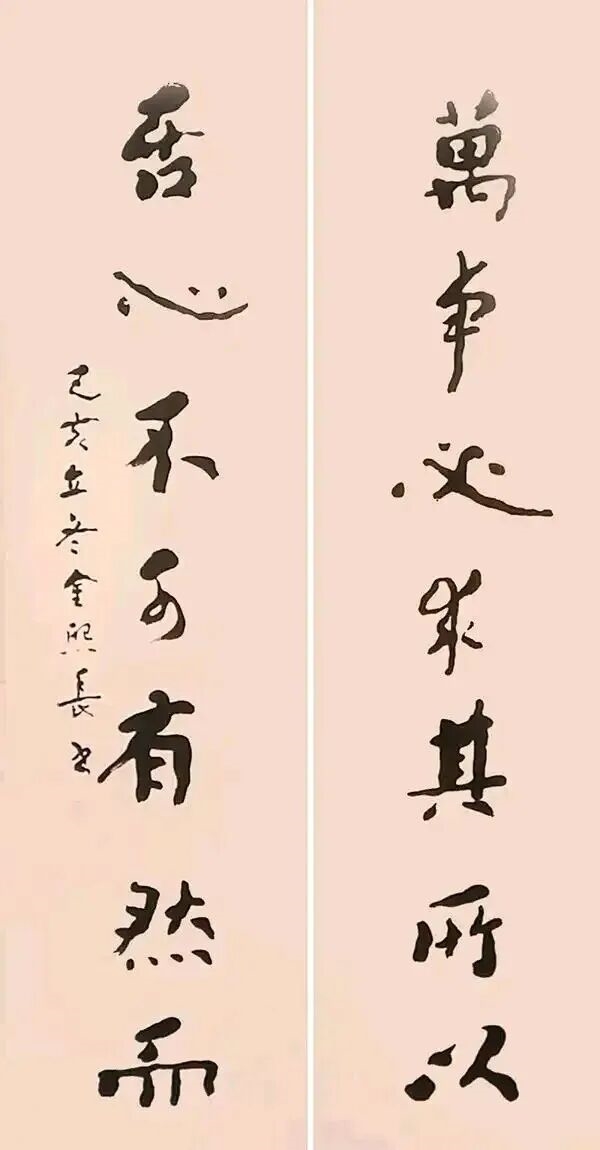 萬事必求其所以
居心不可有然而
己亥立冬金熙長書